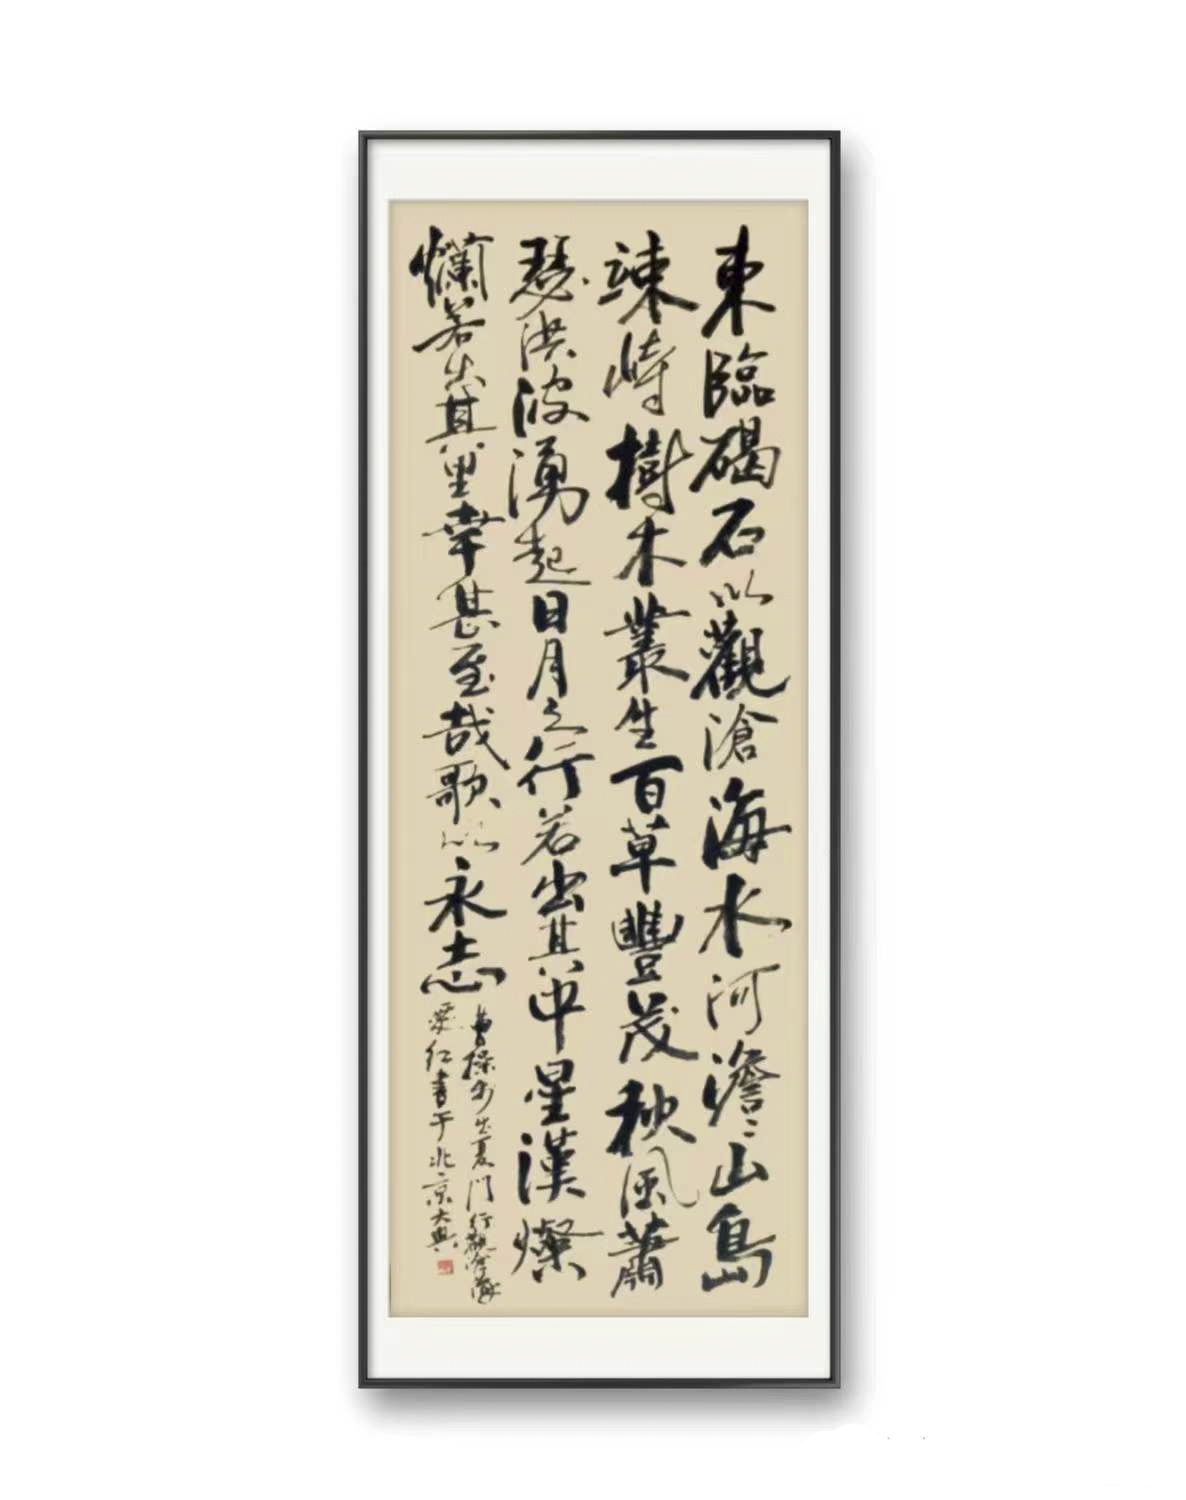 東臨碣石以觀滄海水河澹澹山島
竦峙樹木叢生百草豐茂秋風蕭
瑟洪波湧起日月之行若出其中星漢燦
爛若出其里幸甚至哉歌以永志
曹操步出夏門行觀滄海
紅書于北京大興